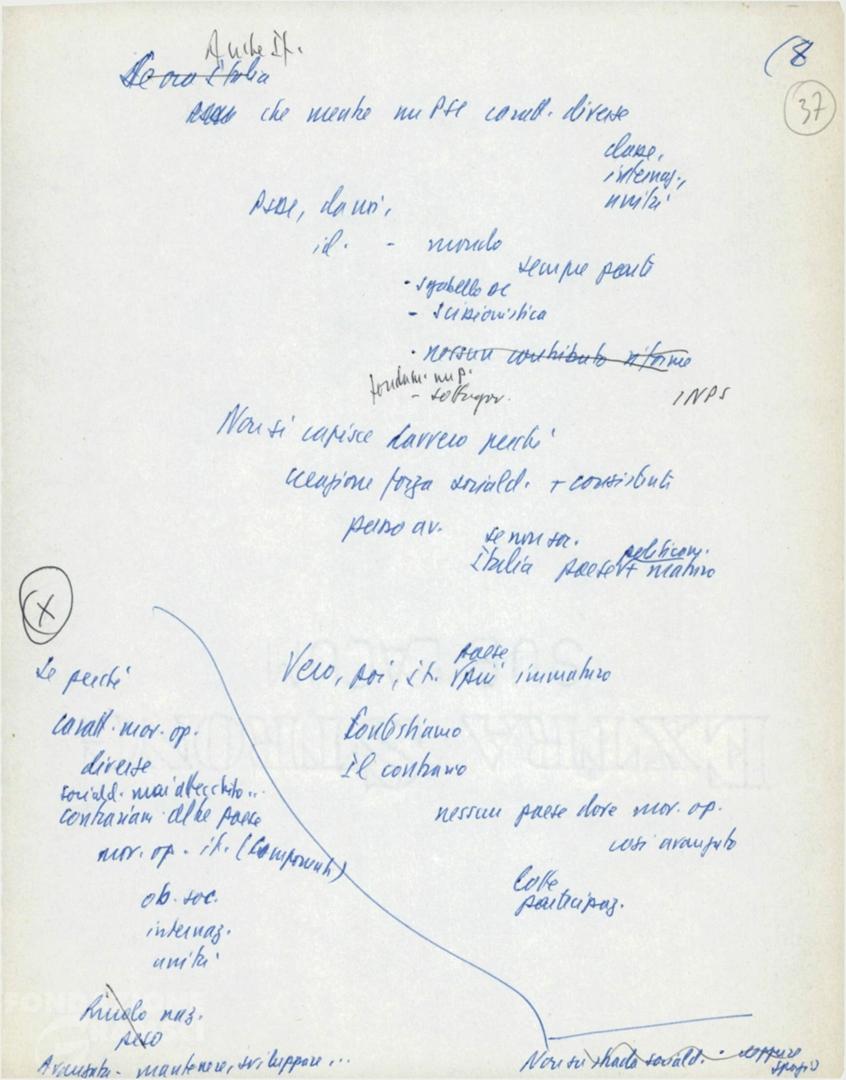 Anche It.
(8
37
che mentre nu PSI caratt. diverse
classe,
internaz.,
unità
PSDI, da noi,
id. - mondo
sempre
- sgabello DC
- scissionistica
- nessun contributo riforme
fondam. nu p.
- sottogov.
INPS
Non si capisce davvero perché
creazione forza sociald. + consistente
passo av.
se non soc.
Italia paese + politicam. maturo
X
Se perché
caratt. mov. op.
diverse
sociald. mai attecchito..
contrariam. altre paese
mov. op. it. (componenti)
ob. soc.
internaz.
unità
Ruolo naz.
peso
Avanzata - mantenere, sviluppare, ...
Vero, poi, it. paese più immaturo
Contestiamo
Il contrario
nessun paese dove mov. op.
così avanzato
Lotte
partecipaz.
Non su strada sociald. - neppure
spazio